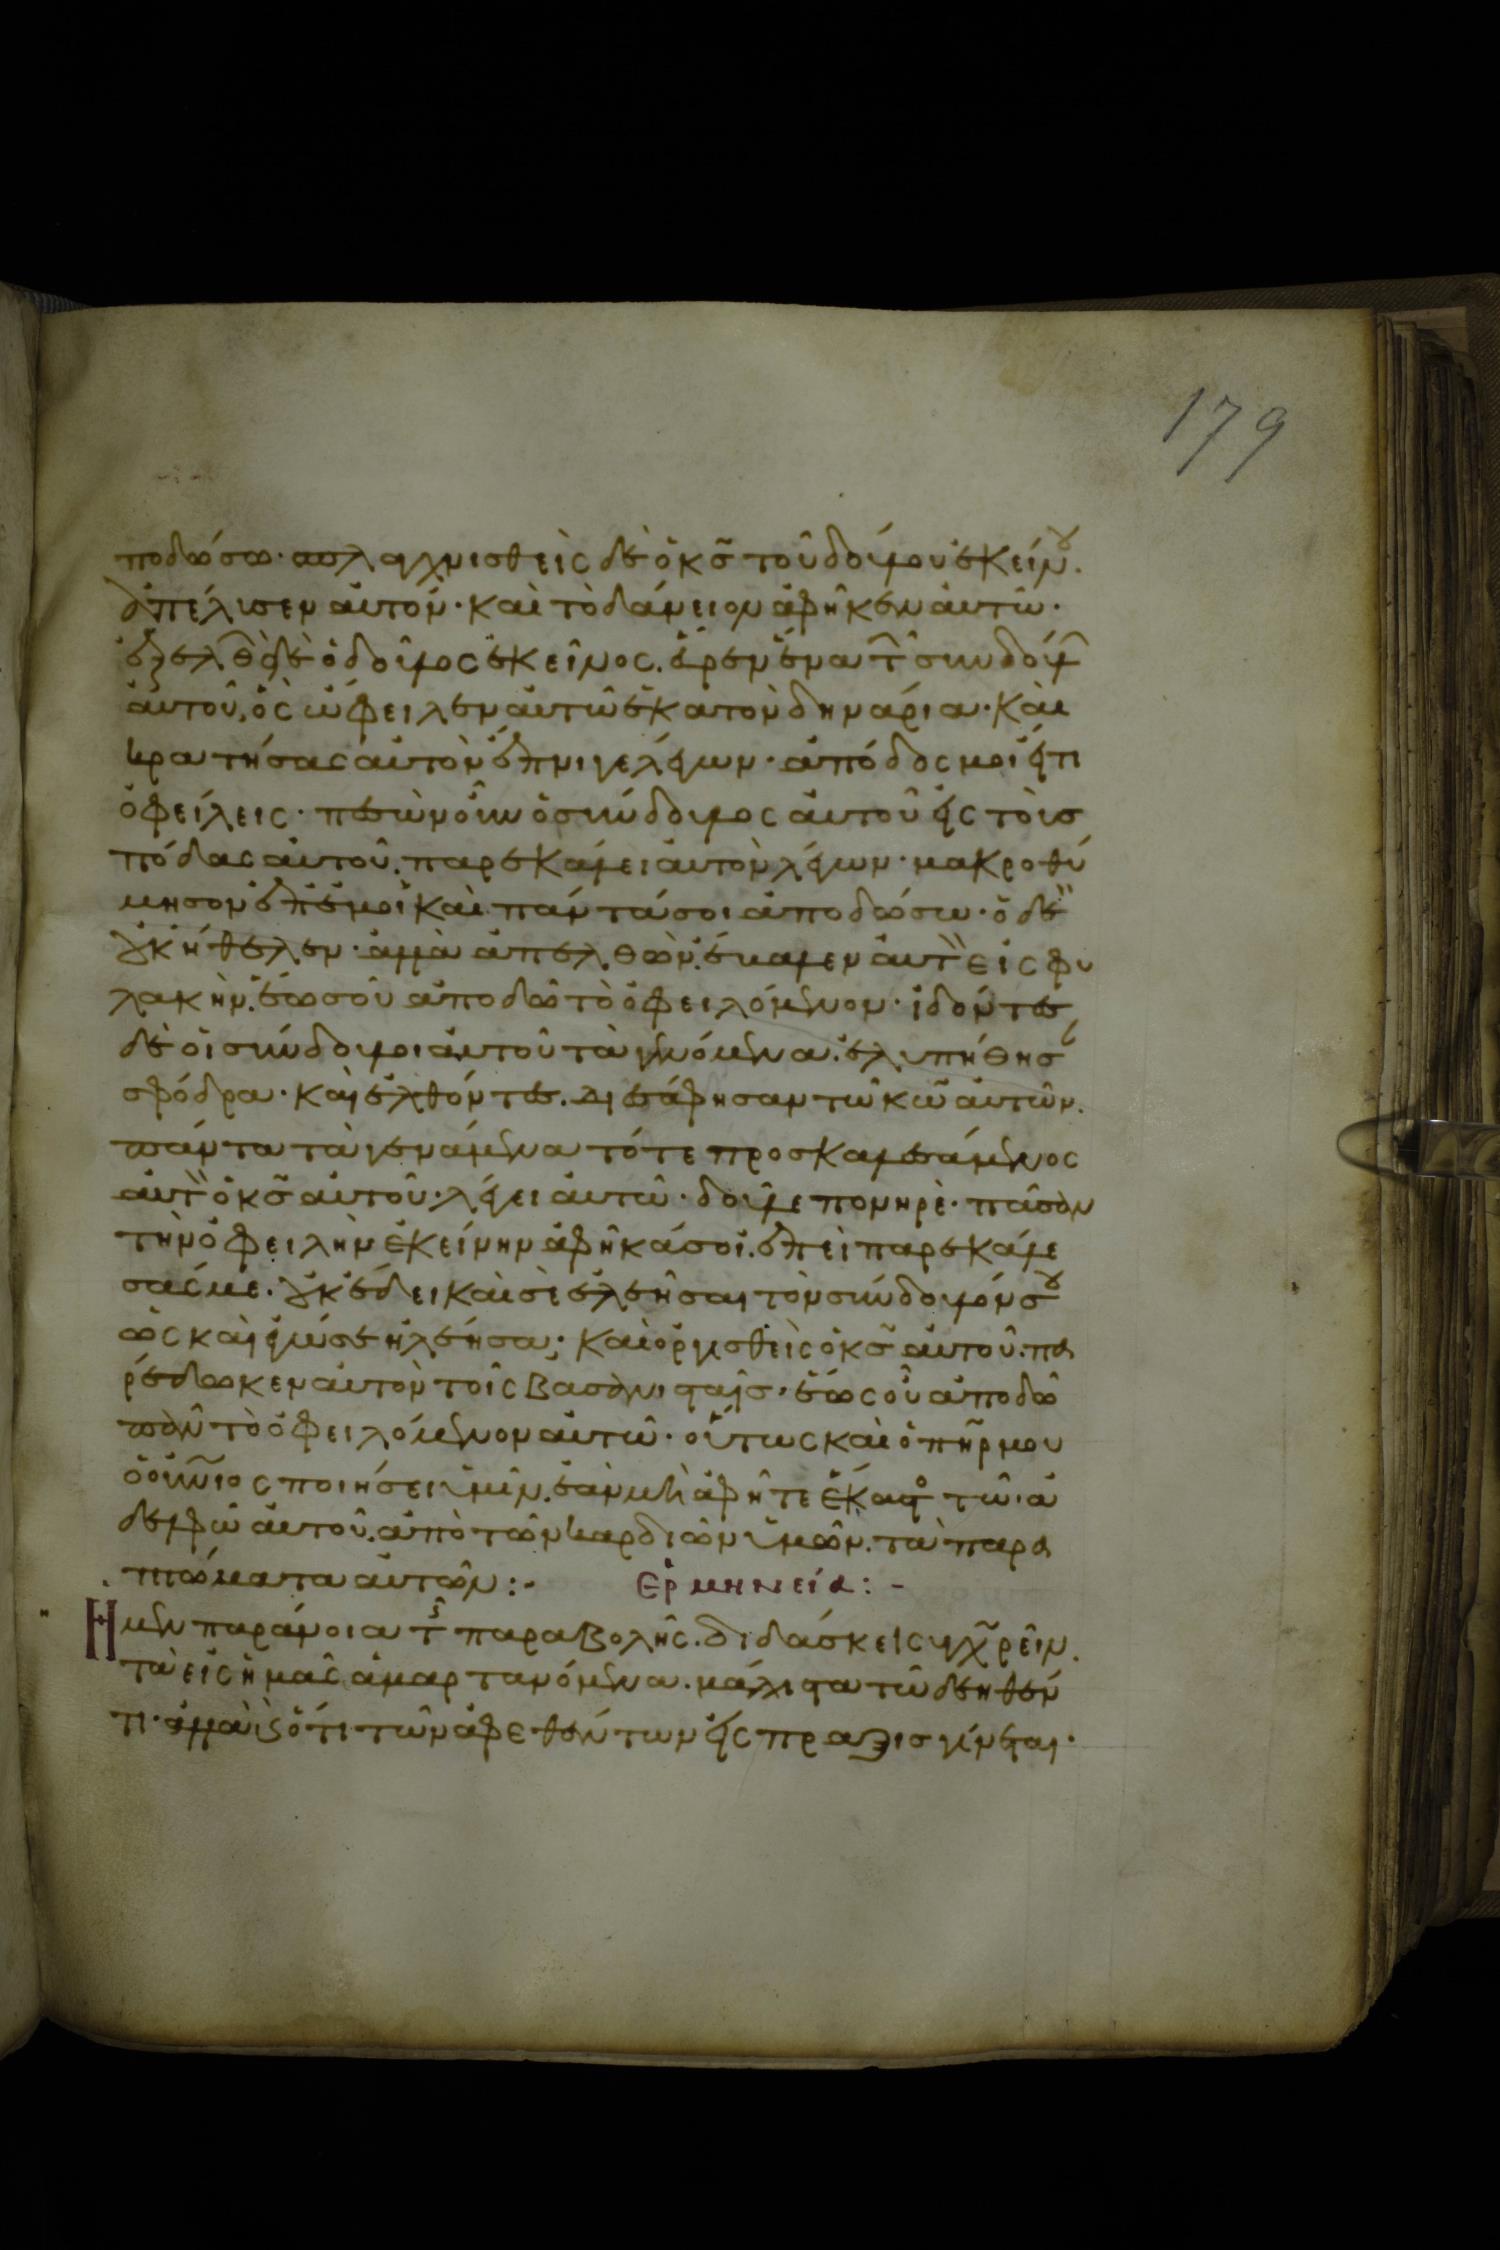 179
ποδώσω· σπλαγχνισθεὶς δὲ ὁ κ̅ς̅ τοῦ δούλου ἐκείνου.
ἀπέλυσεν αὐτόν· καὶ τὸ δάνειον ἀφῆκεν αὐτῶ·
ἐξελθὼν δὲ ὁ δοῦλος ἐκεῖνος. εὗρεν ἕνα τῶν συνδούλων
αὐτοῦ, ὃς ὤφειλεν αὐτῶ ἑκατὸν δηνάρια· καὶ
κρατήσας αὐτὸν ἔπνιγε λέγων· ἀπόδος μοι εἴ τι
ὀφείλεις· πεσὼν οὖν ὁ σύνδουλος αὐτοῦ εἰς τοὺς
πόδας αὐτοῦ. παρεκάλει αὐτὸν λέγων· μακροθύ
μησον ἐπ' ἐμοὶ καὶ πάντα σοι ἀποδώσω· ὁ δὲ
οὐκ ἤθελεν· ἀλλὰ ἀπελθὼν. ἔβαλεν αὐτὸν εἰς φυ
λακὴν. ἕως οὗ ἀποδῶ τὸ ὀφειλόμενον· ἰδόντες
δὲ οἱ σύνδουλοι αὐτοῦ τὰ γενόμενα. ἐλυπήθησαν
σφόδρα· καὶ ἐλθόντες. διεσάφησαν τῶ κ̅ω̅ αὐτῶν.
πάντα τὰ γενάμενα τότε προσκαλεσάμενος
αὐτὸν ὁ κ̅ς̅ αὐτοῦ· λέγει αὐτῶ· δοῦλε πονηρὲ· πᾶσαν
τὴν ὀφειλὴν ἐκείνην ἀφῆκά σοι. ἐπεὶ παρεκάλε
σάς με. οὐκ ἔδει καὶ σὲ ἐλεῆσαι τὸν σύνδουλόν σου
ὡς καὶ ἐγώ σε ἠλέησα· καὶ ὀργισθεὶς ὁ κ̅ς̅ αὐτοῦ. πα
ρέδωκεν αὐτὸν τοῖς βασανισταῖς· ἕως οὗ ἀποδῶ
πᾶν τὸ ὀφειλόμενον αὐτῶ· οὕτως καὶ ὁ π̅η̅ρ̅ μου
ὁ ο̅υ̅ν̅ιος ποιήσει ὑμῖν. ἐὰν μὴ ἀφῆτε ἕκαστος τῶ ἀ
δελφῶ αὐτοῦ. ἀπὸ τῶν καρδιῶν ὑμῶν. τὰ παρα
πτώματα αὐτῶν:- Ἑρμηνεία:-
Ἡ μὲν παράνοια τῆς παραβολῆς. διδάσκει συγχωρεῖν.
τὰ εἰς ἡμᾶς ἁμαρτανόμενα. μάλιστα τῶ δεηθέν
τι· ἀλλὰ καὶ ὅτι τῶν ἀφεθέντων εἴσπραξις γίνεται·